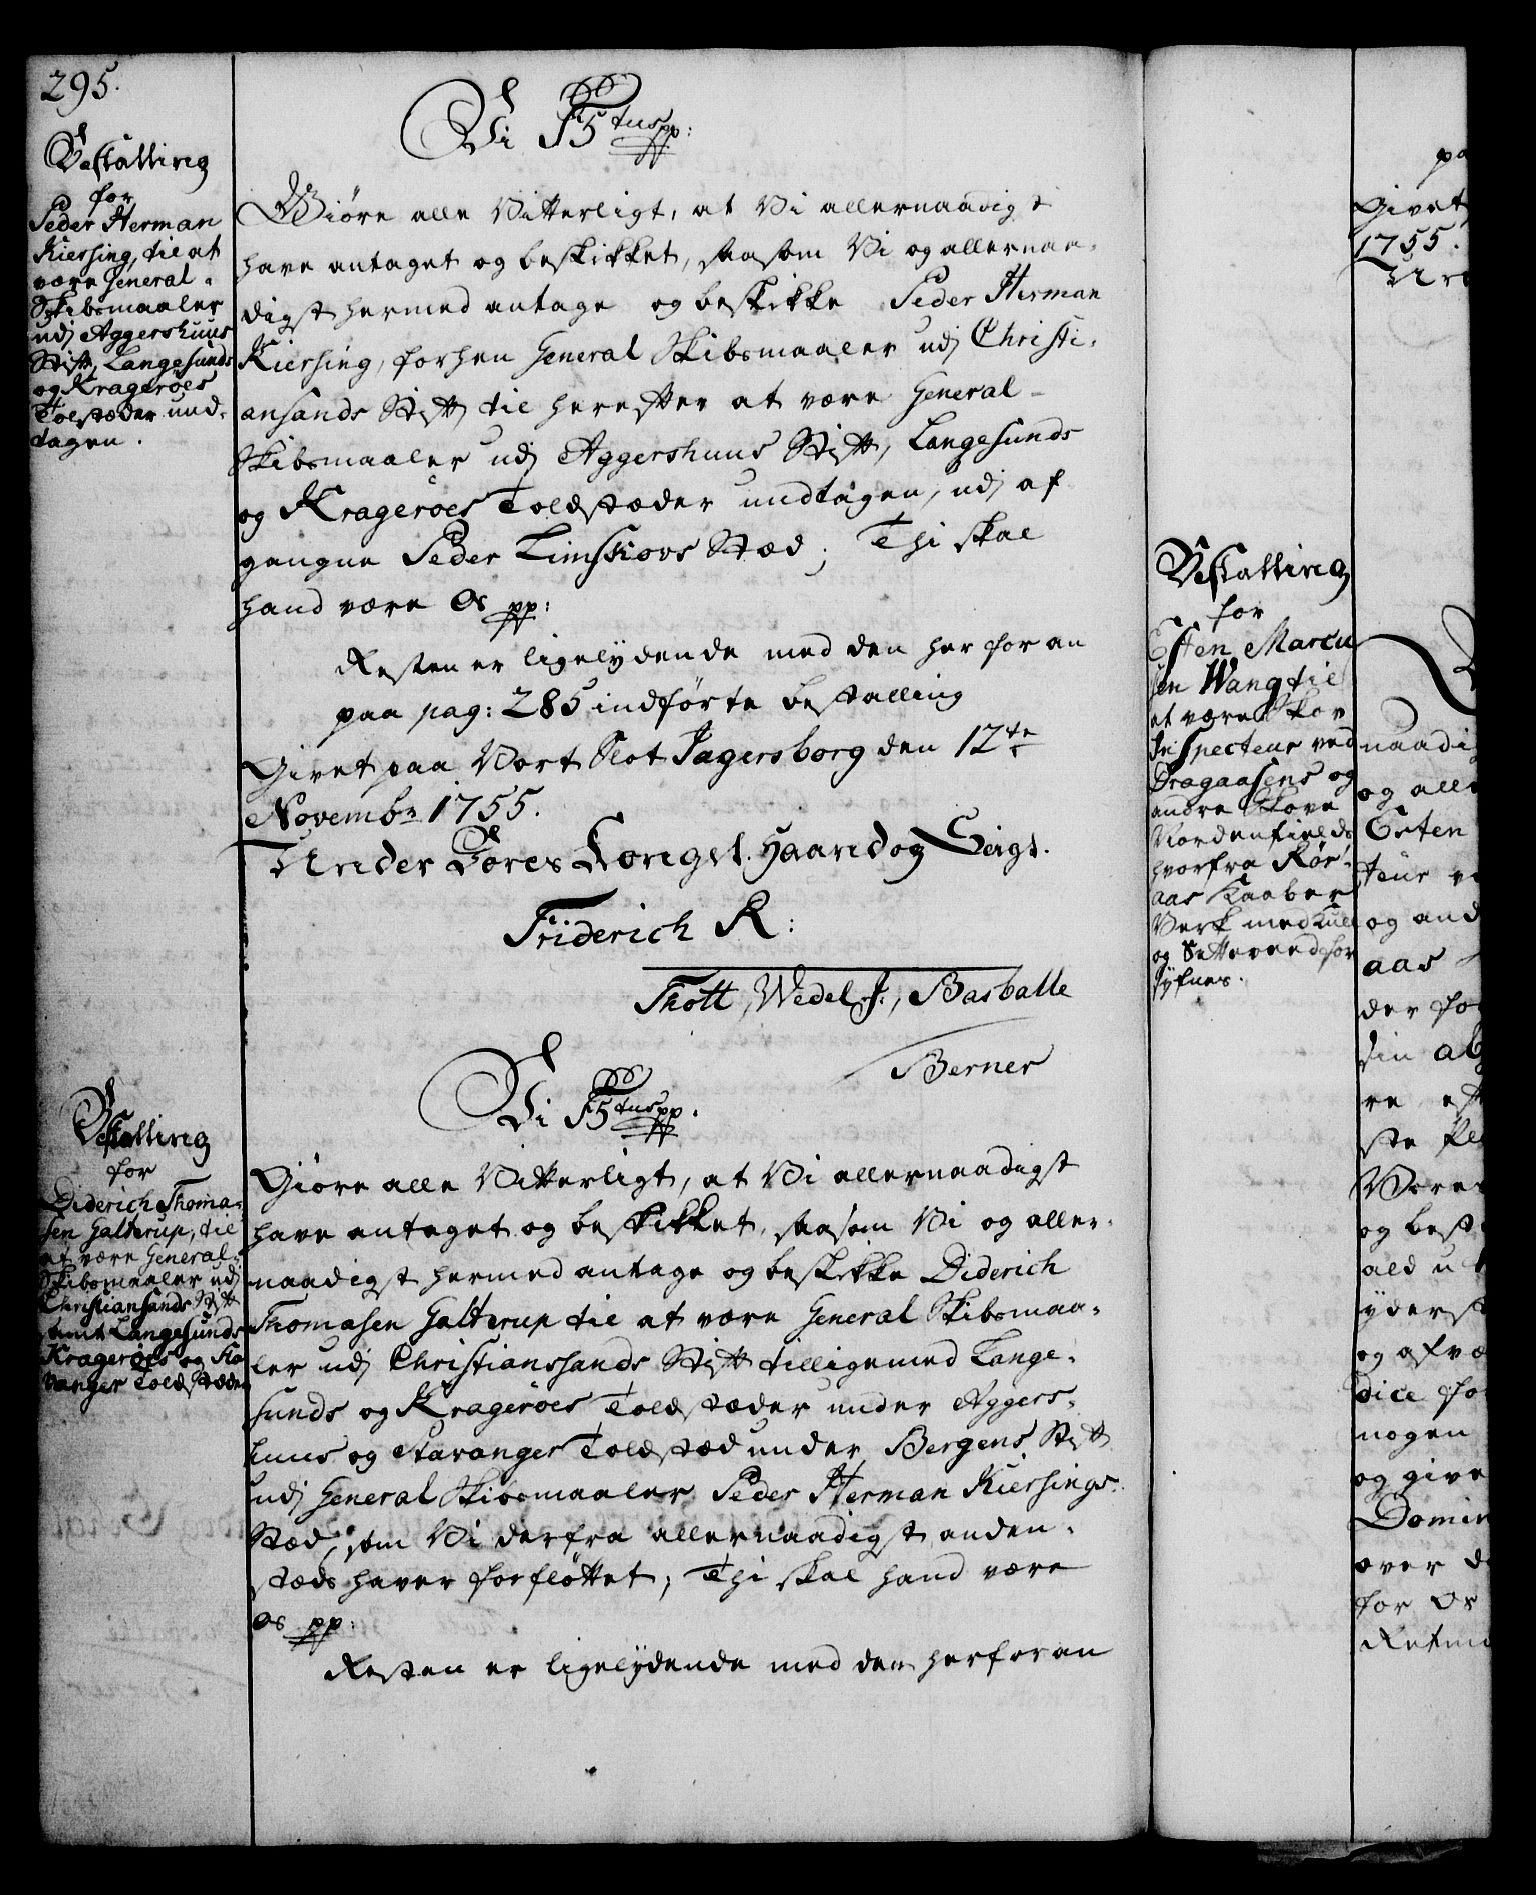 295.
Bestalling
for
Peder Herman
Kiersing, til at
være General-
Skibsmaaler
udj Aggershuus
Stift, Langesunds
og Krageröes
Tolstæder und-
tagen.
Vi F5 tus pp:
Giöre alle Vitterligt, at Vi allernaadigst
have antaget og beskikket, saasom Vi og allernaa-
digst hermed antage og beskikke Peder Herman
Kiersing, forhen General Skibsmaaler udj Christi-
ansands Stift til herefter at være General-
Skibsmaaler udj Aggershuus Stift, Langesunds
og Krageröes Toldstæder undtagen, udj af
gangne Peder Limskiovs Stæd; Thi skal
hand være Os pp:
Resten er ligelydende med den her foran
paa pag: 285 indförte bestalling
Givet paa Vort Slot Jagersborg den 12te
Novembr 1755.
Under Vores Kongel. Haand og Seigl.
Friderich R:
Thott, Wedel J., Barballe
Berner
Bestalling
for
Diderich Thoma-
sen Galterup, til
at være General-
Skibsmaaler udj
Christiansands Stift
samt Langesunds
Krageröes og Sta
vanger Toldstæder
Vi F5 tus pp.
Giöre alle Vitterligt, at Vi allernaadigst
have antaget og beskikket, saasom Vi og aller-
naadigst hermed antage og beskikke Diderich
Thomasen Galterup til at være General Skibsmaa-
ler udj Christianssands Stift tilligemed Lange-
sunds og Krageröes Toldstæder under Aggers-
huus og Stavanger Toldstæd under Bergens Stift
udj General Skibsmaaler Peder Herman Kiersings
Stæd, som Vi derfra allernaadigst anden-
stæds haver forflöttet; Thi skal hand være
Os pp:
Resten er ligelydende med den herforan
Bestalling
for
Esten Marcu
sen Wang til
at være Skov
Inspecteur ved
Dragaasens og
andre Skove
Nordenfields
hvorfra Rör-
aas Kaaber
Verk med Kull
og Setteveed for
syfnes.
pa
Givet
1755.
Un
naadi
og alle
Esten
teur ve
og and
aas
der for
sin
re eft
ste
Vores
og best
ald u
yderst
og afvæ
dice for
nogen
og give
Domin
over d
for Os
Retmæ